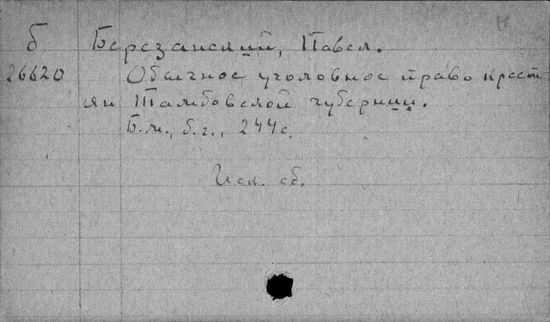 б Березанский, Павел.
26620 Обычное уголовное право крестъ
ян Тамбовской губернии.
Б.м., б.г., 244 с.
Исл. сб.